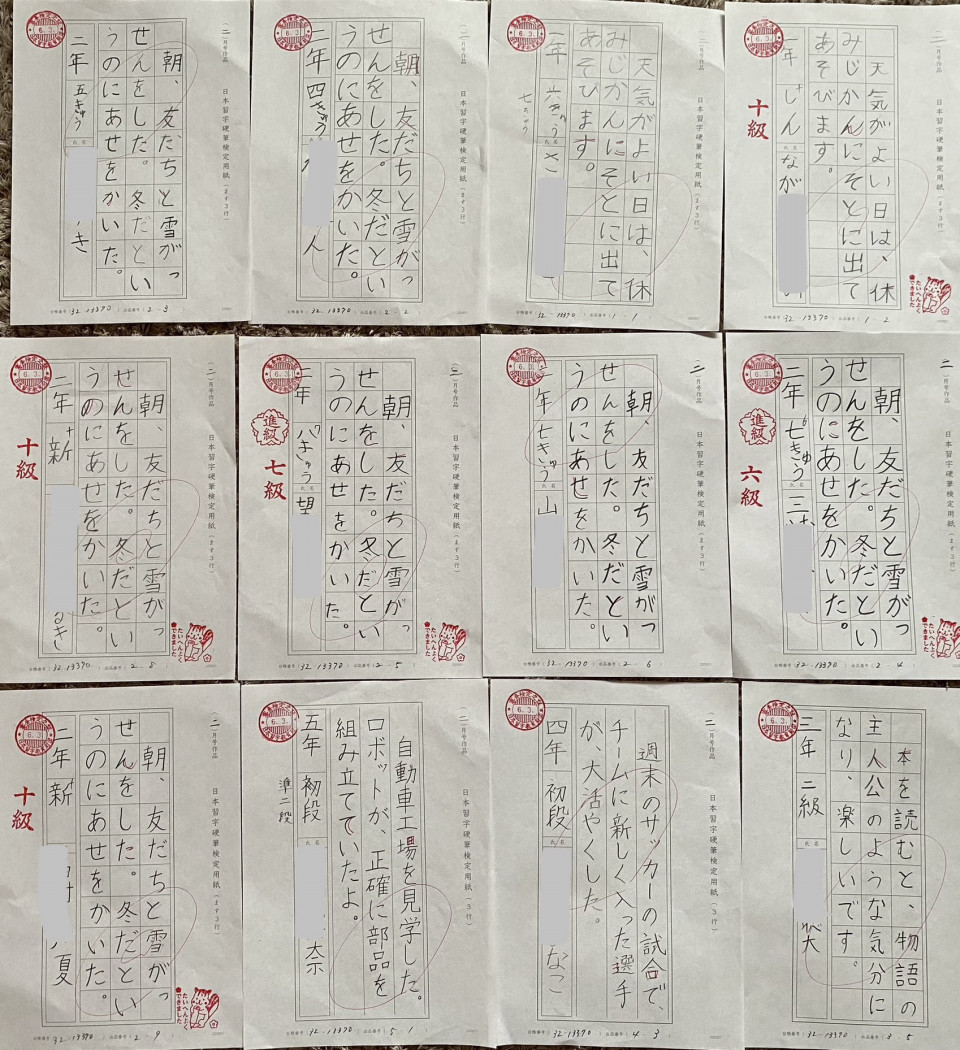 二月号作品
日本習字硬筆検定用紙(ます3行)
朝、友だちと雪がっ
せんをした。冬だとい
うのにあせをかいた。
二年 五きゅう
氏名
き
6.3.
支部番号 32-13370 出品番号 2-3
二月号作品
日本習字硬筆検定用紙(ます3行)
朝、友だちと雪がっ
せんをした。冬だとい
うのにあせをかいた。
二年 四きゅう
人
6.3.
32-13370 出品番号 2-2
二月号作品
日本習字硬筆検定用紙(ます3行)
天気がよい日は、休
みじかんにそとに出て
あそびます。
一年 六きゅう
氏名
さ
6.3.
32-13370 出品番号 1-1
二月号作品
日本習字硬筆検定用紙(ます3行)
天気がよい日は、休
みじかんにそとに出て
あそびます。
一年 しん
氏名
なが
十級
たいへんよくできました
32-13370 出品番号 1-2
二月号作品
日本習字硬筆検定用紙(ます3行)
朝、友だちと雪がっ
せんをした。冬だとい
うのにあせをかいた。
二年 新
るき
十級
6.3.
たいへんよくできました
32-13370 出品番号 2-8
二月号作品
日本習字硬筆検定用紙(ます3行)
朝、友だちと雪がっ
せんをした。冬だとい
うのにあせをかいた。
二年 八きゅう
氏名
望
進級
七級
6.3.
たいへんよくできました
32-13370 出品番号 2-5
二月号作品
日本習字硬筆検定用紙(ます3行)
朝、友だちと雪がっ
せんをした。冬だとい
うのにあせをかいた。
二年 七きゅう
氏名
山
6.3.
32-13370 出品番号 2-6
二
日本習字硬筆検定用紙(ます3行)
朝、友だちと雪がっ
せんをした。冬だとい
うのにあせをかいた。
二年 七きゅう
氏名
進級
六級
6.3.
たいへんよくできました
32-13370 出品番号 2-4
二月号作品
日本習字硬筆検定用紙(ます3行)
朝、友だちと雪がっ
せんをした。冬だとい
うのにあせをかいた。
二年 新
夏
十級
6.3.
たいへんよくできました
32-13370 出品番号 2-9
二月号作品
日本習字硬筆検定用紙(3行)
自動車工場を見学した。
ロボットが、正確に部品を
組み立てていたよ。
五年 初段
氏名
奈
準二段
6.3.
32-13370 出品番号 5-1
二月号作品
日本習字硬筆検定用紙(3行)
週末のサッカーの試合で、
チームに新しく入った選手
が、大活やくした。
四年 初段
氏名
なつ
6.3.
32-13370 出品番号 4-3
二月号作品
日本習字硬筆検定用紙(ます3行)
本を読むと、物語の
主人公のような気分に
なり、楽しいです。
三年 二級
氏名
6.3.
32-13370 出品番号 3-5